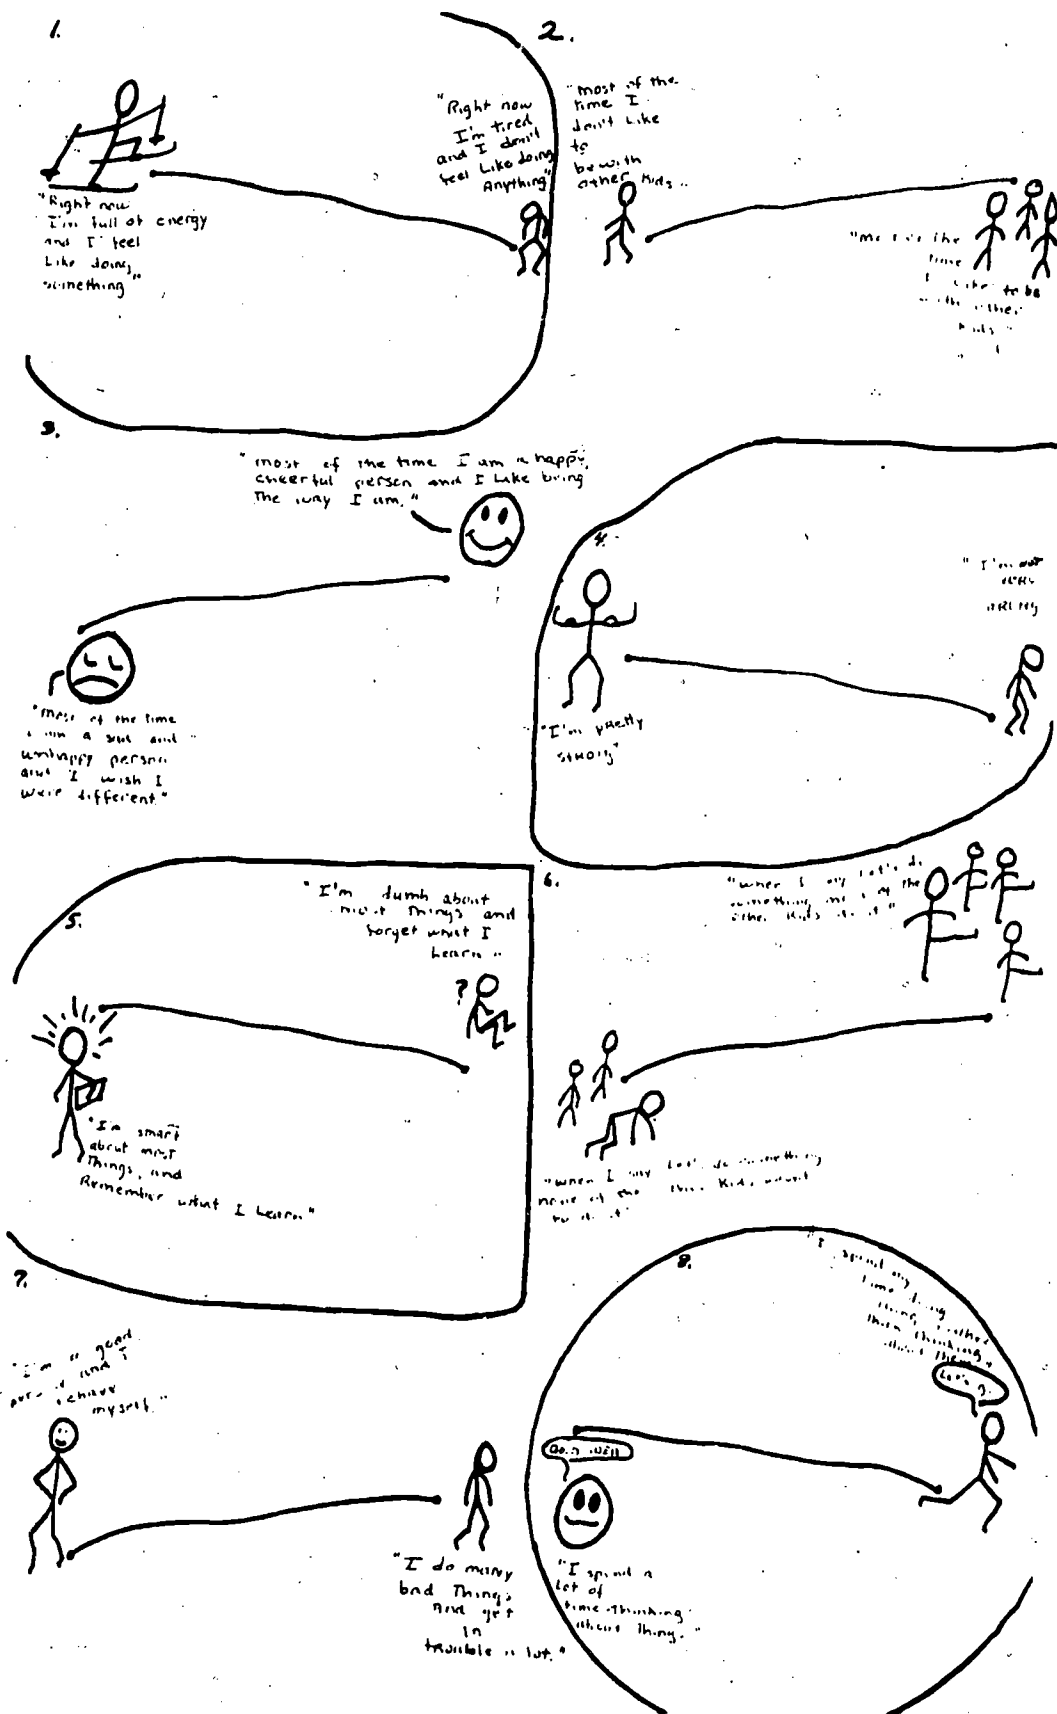 1.
"Right now
I'm full of energy
and I feel
Like doing
something"
"Right now
I'm tired
and I don't
feel Like doing
Anything"
2.
"most of the
time I
don't Like
to
be with
other Kids"
the
time
I Like to be
with other
Kids"
3.
"most of the time I am a happy,
cheerful person and I Like being
The way I am."
"Most of the time
I am a sad and
unhappy person
and I wish I
were different."
4.
"I'm pretty
strong"
"I'm not
very
"
5.
"I'm dumb about
most Things and
forget what I
Learn"
?
"I'm smart
about most
Things, and
Remember what I Learn"
6.
"when I say Let's do
something of the
other Kids do it"
"when I say Let's do something
none of the other Kids want
to do it"
7.
"I'm a good
and I
behave
myself."
"I do many
bad Things
And get
in
trouble a lot."
8.
"I spend my
time doing
things rather
than thinking
about them"
Let's go
"I spend a
Lot of
time thinking
about things."